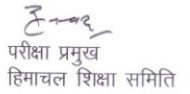 परीक्षा प्रमुख
हिमाचल शिक्षा समिति